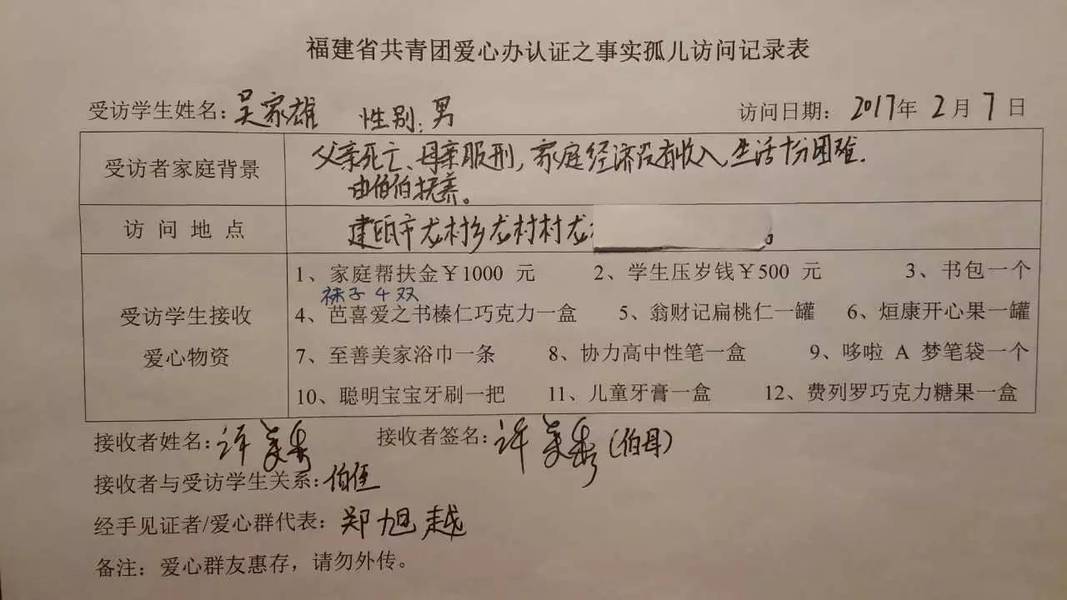 福建省共青团爱心办认证之事实孤儿访问记录表
受访学生姓名:吴家雄 性别:男 访问日期: 2017年 2月 7日
受访者家庭背景
父亲死亡、母亲服刑,家庭经济没有收入生活十分困难.
由伯伯抚养。
访 问 地 点
建瓯市龙村乡龙村村龙
受访学生接收
爱心物资
1、家庭帮扶金¥1000 元 2、学生压岁钱¥500 元 3、书包一个
袜子4双
4、芭喜爱之书榛仁巧克力一盒 5、翁财记扁桃仁一罐 6、烜康开心果一罐
7、至善美家浴巾一条 8、协力高中性笔一盒 9、哆啦 A 梦笔袋一个
10、聪明宝宝牙刷一把 11、儿童牙膏一盒 12、费列罗巧克力糖果一盒
接收者姓名:许美秀 接收者签名:许美秀(伯母)
接收者与受访学生关系:伯侄
经手见证者/爱心群代表:郑旭越
备注:爱心群友惠存,请勿外传。